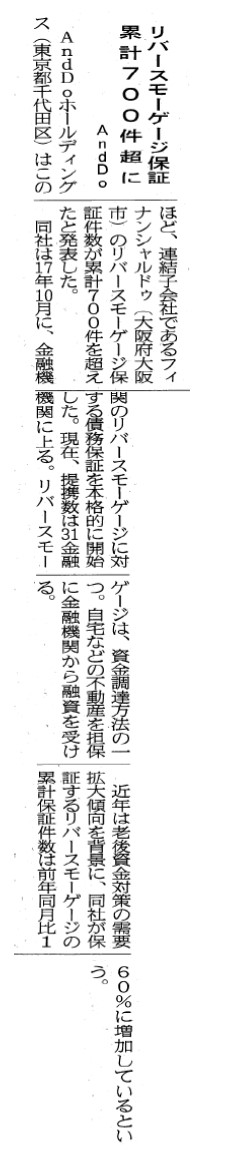 リバースモーゲージ保証
累計７００件超に
ＡｎｄＤｏ
ＡｎｄＤｏホールディング
ス（東京都千代田区）はこの
ほど、連結子会社であるフィ
ナンシャルドゥ（大阪府大阪
市）のリバースモーゲージ保
証件数が累計７００件を超え
たと発表した。
同社は17年10月に、金融機
関のリバースモーゲージに対
する債務保証を本格的に開始
した。現在、提携数は31金融
機関に上る。リバースモー
ゲージは、資金調達方法の一
つ。自宅などの不動産を担保
に金融機関から融資を受け
る。
近年は老後資金対策の需要
拡大傾向を背景に、同社が保
証するリバースモーゲージの
累計保証件数は前年同月比１
６０％に増加しているとい
う。